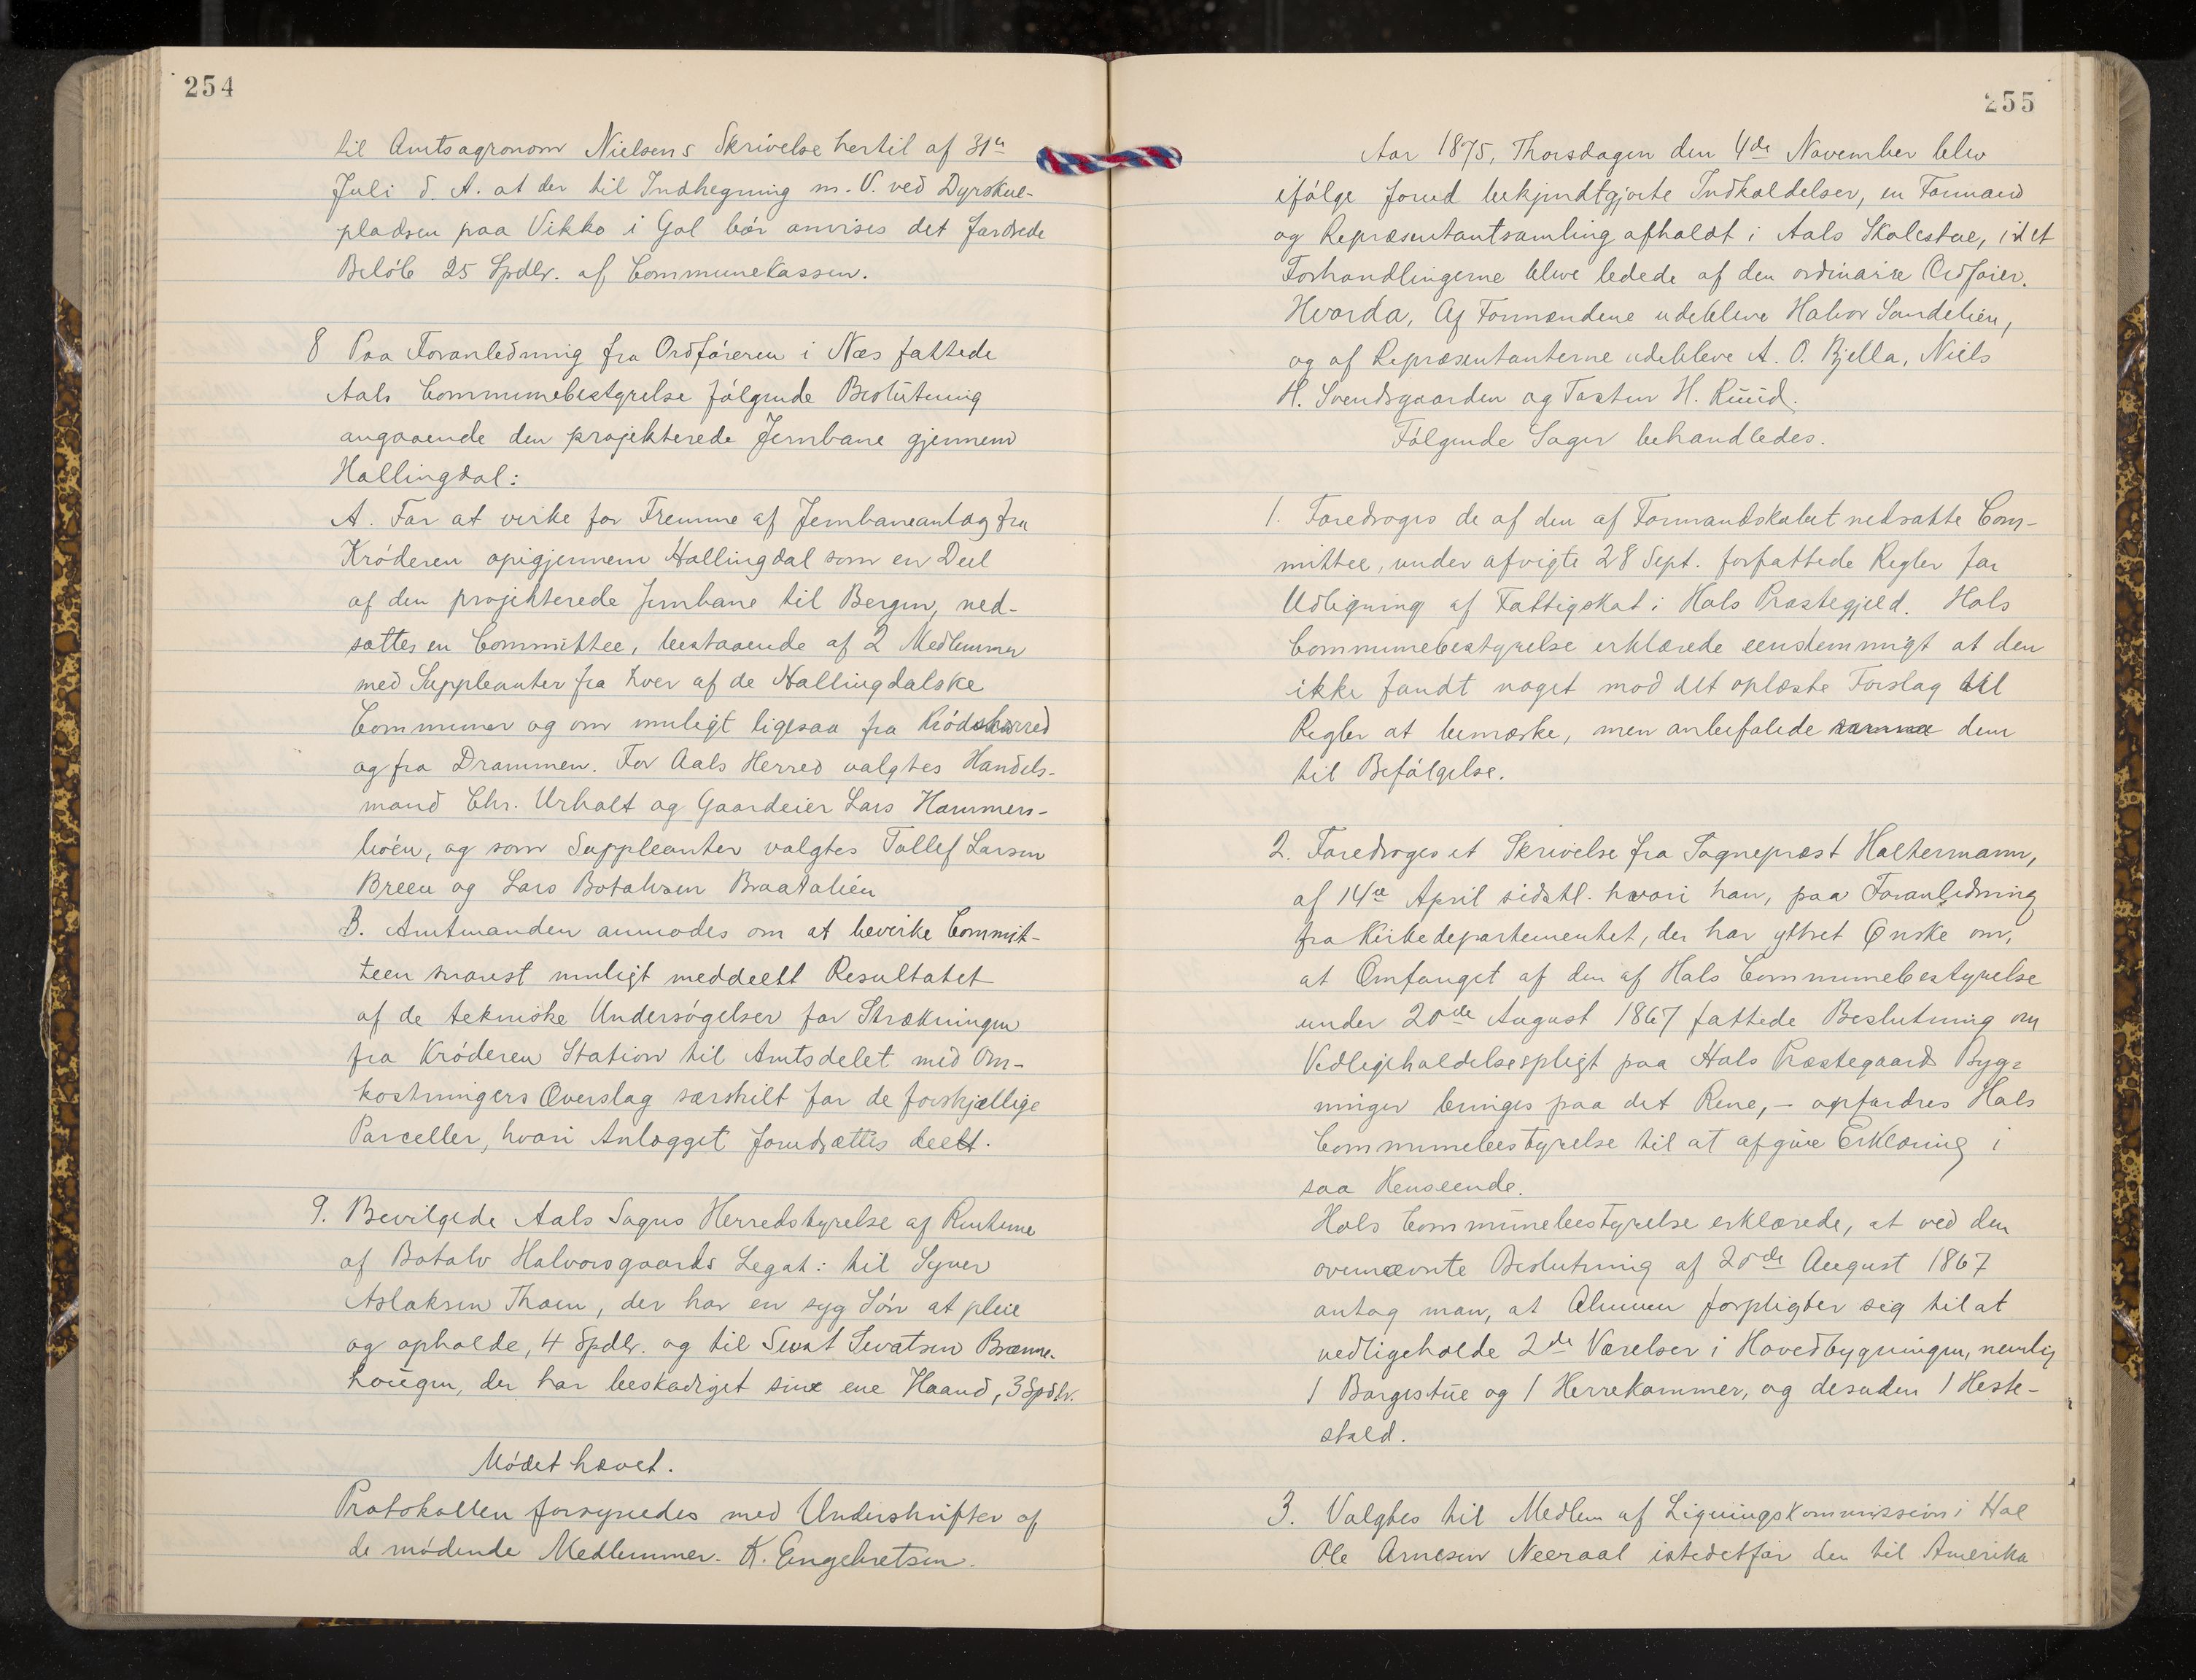 254
til Amtsagronom Nielsens Skrivelse hertil af 31te
Juli d. A. at der til Indhegning m. V. ved Dyrskue-
pladsen paa Vikko i Gol bør anvises det fordrede
Beløb 25 Spdlr. af Communekassen.
8 Paa Foranledning fra Ordføreren i Næs fattede
Aals Communebestyrelse følgende Beslutning
angaaende den projekterede Jernbane gjennem
Hallingdal:
A. For at virke for Fremme af Jernbaneanlæg fra
Krøderen opigjennem Hallingdal som en Deel
af den projekterede Jernbane til Bergen, ned-
sættes en Committee, bestaaende af 2 Medlemmer
med Suppleanter fra hver af de Hallingdalske
Communer og om muligt ligesaa fra Krødsherred
og fra Drammen. For Aals Herred valgtes Handels-
mand Chr. Urholt og Gaardeier Lars Hammers-
bøen, og som Suppleanter valgtes Tollef Larsen
Breen og Lars Botolvsen Braatalien
B. Amtmanden anmodes om at bevirke Commit-
teen snarest muligt meddeelt Resultatet
af de tekniske Undersøgelser for Strækningen
fra Krøderen Station til Amtsdelet med Om-
kostningers Overslag særskilt for de forskjællige
Parceller, hvori Anlægget forudsættes deelt.
9. Bevilgede Aals Sogns Herredstyrelse af Renterne
af Botolv Halvorsgaards Legat: til Syver
Aslaksen Thoen, der har en syg Søn at pleie
og opholde, 4 Spdlr. og til Sevat Sevatsen Brænne-
hougen, der har beskadiget sine ene Haand, 3 Spdlr.
Mødet hævet.
Protokollen forsynedes med Underskrifter af
de mødende Medlemmer. K. Engebretsen.
255
Aar 1875, Thorsdagen den 4de November blev
ifølge forud bekjendtgjorte Indkaldelser, en Formand
og Repræsentantsamling afholdt i Aals Skolestue, idet
Forhandlingerne bleve ledede af den ordinaire Ordfører.
Hvorda, Af Formændene udebleve Halvor Sundelien,
og af Repræsentanterne udebleve A. O. Bjella, Niels
H. Svendsgaarden og Tosten H. Ruud.
Følgende Sager behandledes.
1. Foredroges de af den af Formandskabet nedsatte Com-
mittee, under afvigte 28 Sept. forfattede Regler for
Udligning af Fattigskat i Hols Præstegjeld. Hols
Communebestyrelse erklærede eenstemmigt at den
ikke fandt noget mod det oplæste Forslag til
Regler at bemærke, men anbefalede samme dem
til Befølgelse.
2. Foredroges et Skrivelse fra Sognepræst Holtermann,
af 14de April sidstl. hvori han, paa Foranledning
fra Kirkedepartementet, der har yttret Ønske om,
at Omfanget af den af Hols Communebestyrelse
under 20de August 1867 fattede Beslutning om
Vedligeholdelsespligt paa Hols Præstegaards Byg-
ninger bringes paa det Rene, – opfordres Hols
Communebestyrelse til at afgive Erklæring i
saa Henseende.
Hols Communebestyrelse erklærede, at ved den
ovennævnte Beslutning af 20de August 1867
antog man, at Almuen forpligter sig til at
vedligeholde 2de Værelser i Hovedbygningen, nemlig
1 Borgestue og 1 Herrekammer, og desuden 1 Heste-
stald.
3. Valgtes til Medlem af Ligningskommissionen i Hol
Ole Arnesen Neeraal istedetfor den til Amerika